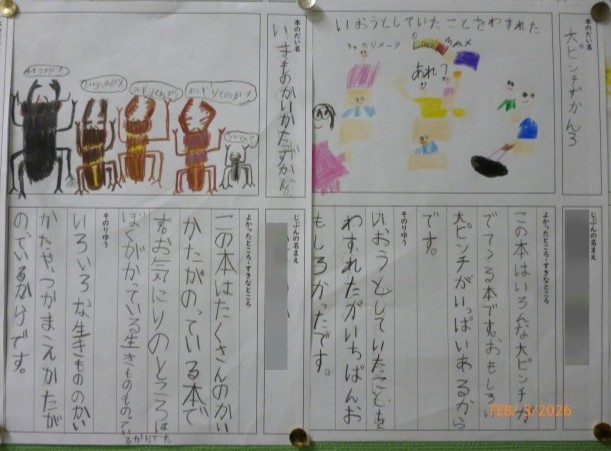 本のだい名
大ピンチずかん3
いおうとしていたことをわすれた
あれ?
じぶんの名まえ
よかったところ・すきなところ
この本はいろんな大ピンチが
でてくる本です。おもしろい
大ピンチがいっぱいあるから
です。
そのりゆう
いおうとしていたことを
わすれたがいちばんお
もしろかったです。
本のだい名
いきものかいかたずかん
じぶんの名まえ
よかったところ・すきなところ
この本はたくさんのかい
かたがのっている本で
す。お気にりのところは
ぼくがかっている生きものものってい
るかりです。
そのりゆう
いろいろな生きもののかい
かたや、つかまえかたが
のっているからです。
FEB/ 3/2026